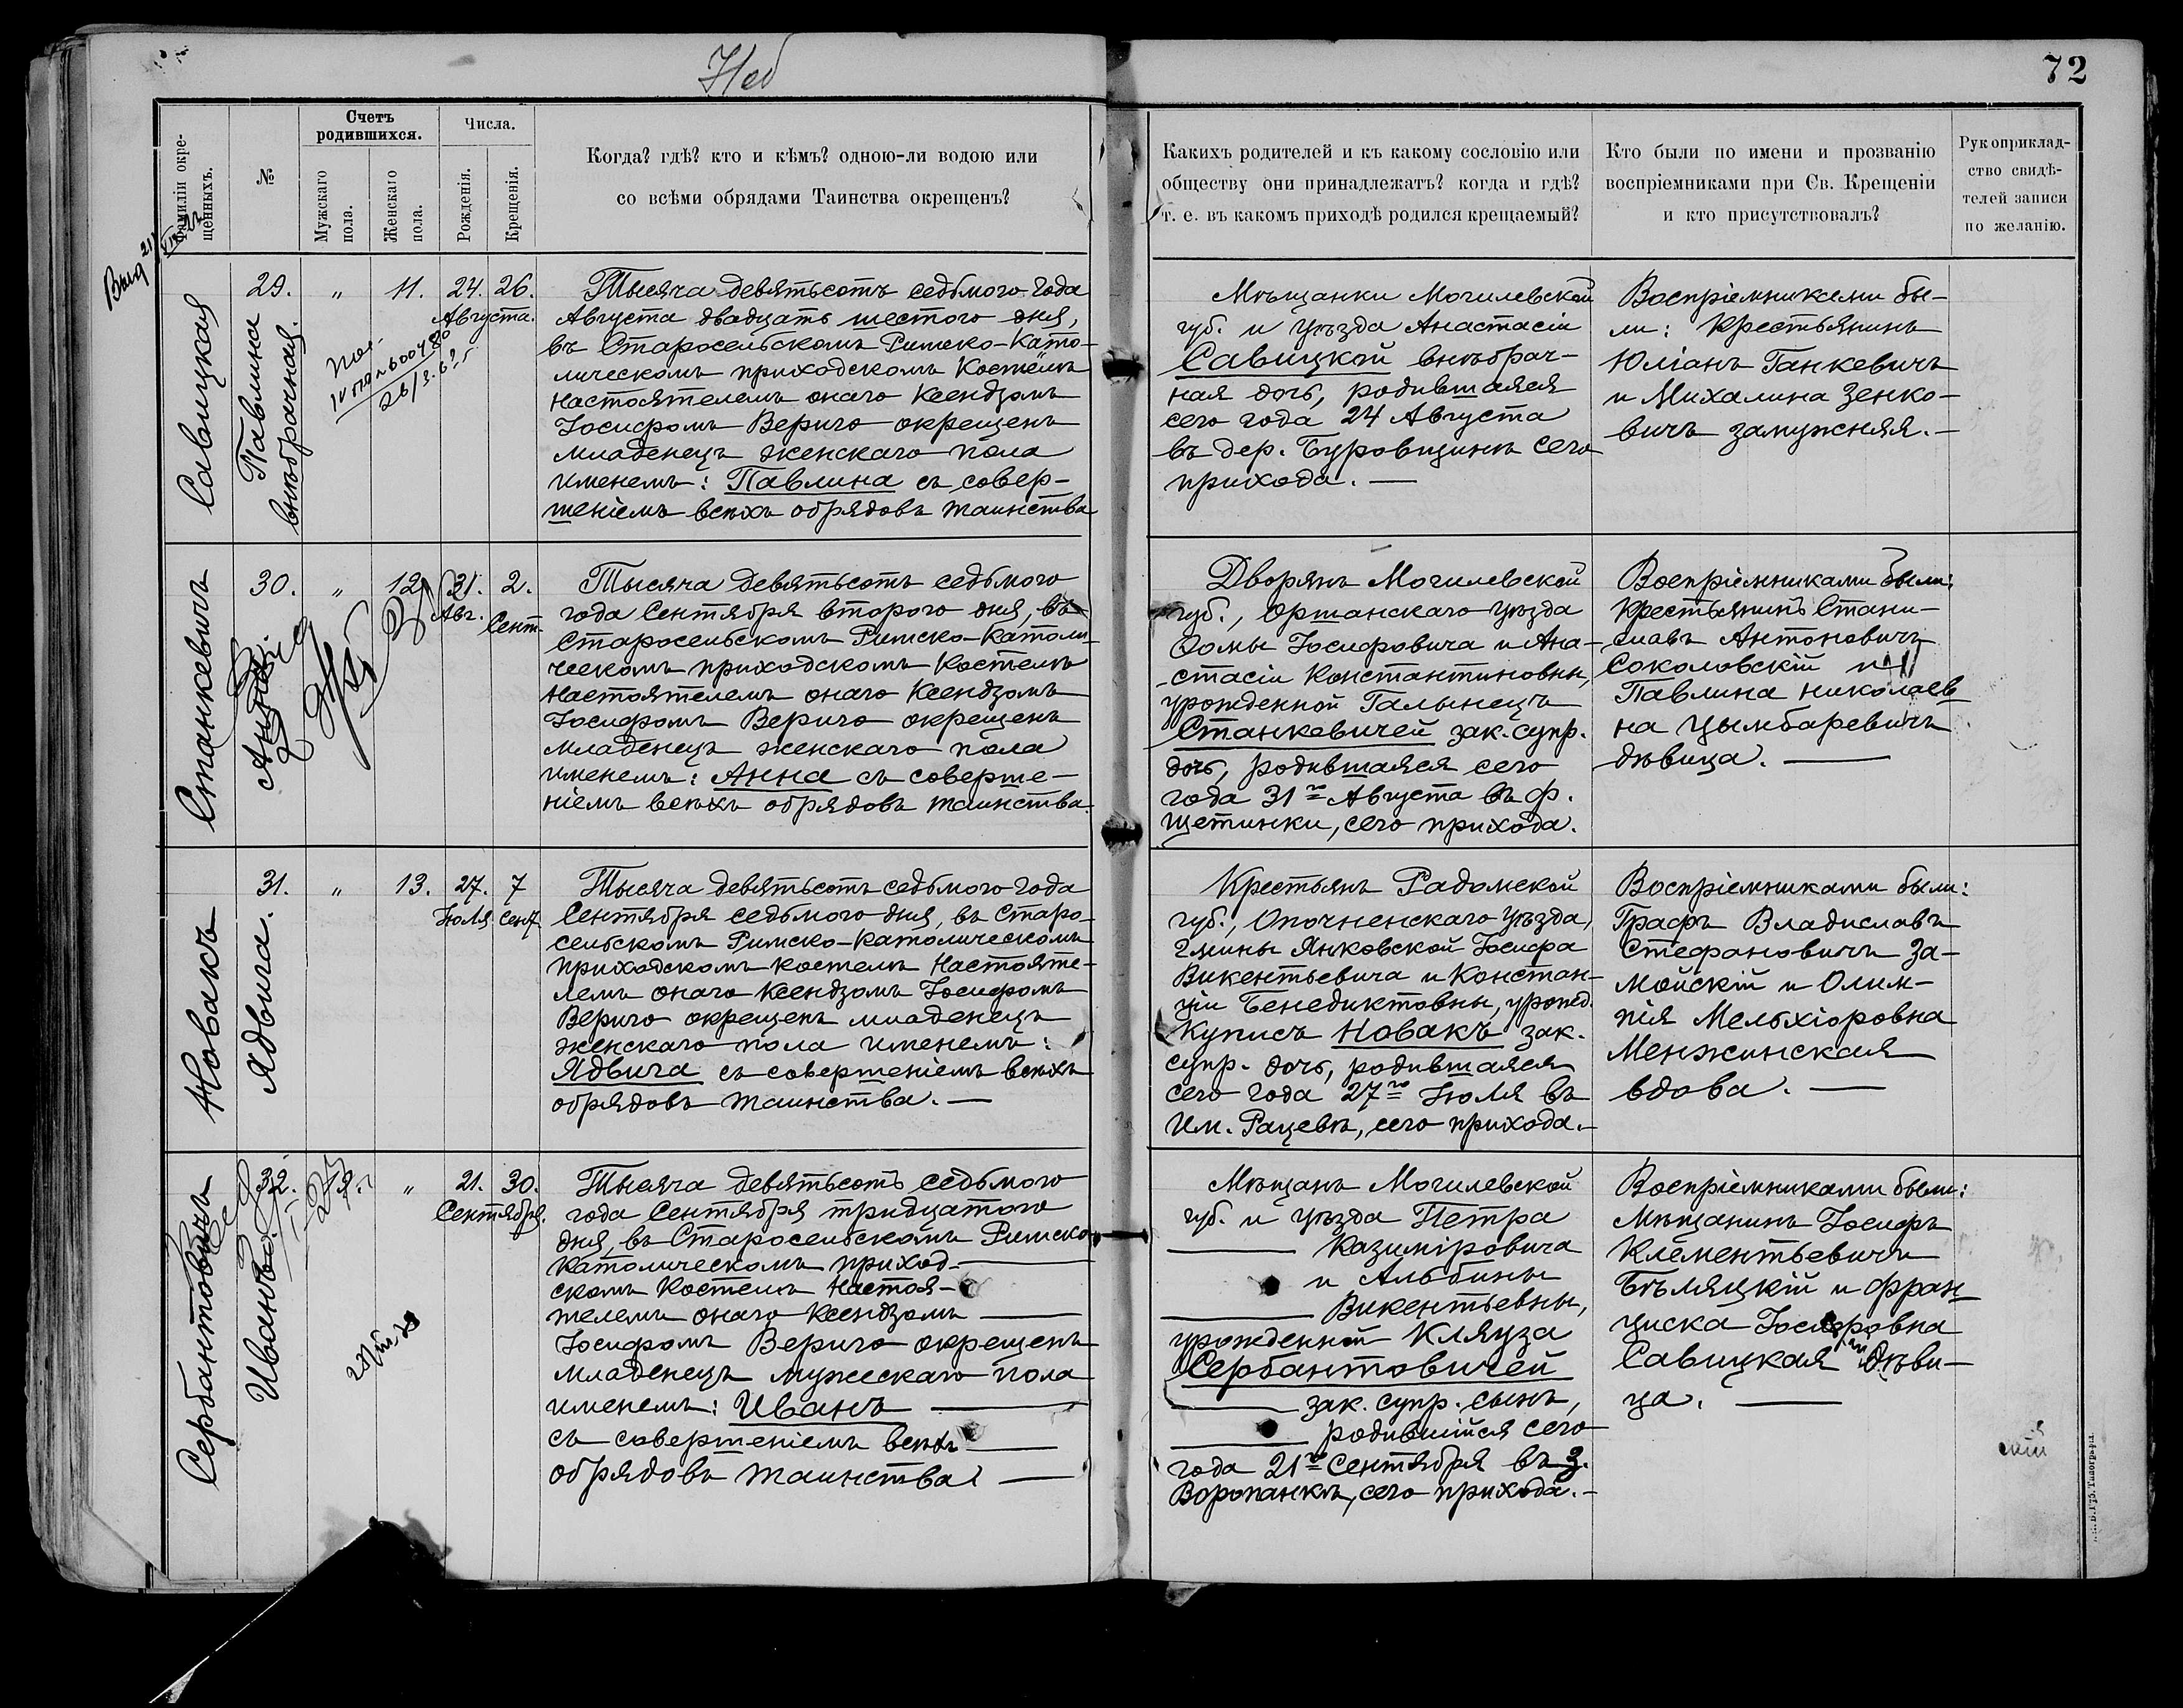 72
Фамиліи окре-
щенныхъ.
№
Счетъ
родившихся.
Мужскаго
пола.
Женскаго
пола.
Числа.
Рожденія.
Крещенія.
Когда? гдѣ? кто и кѣмъ? одною-ли водою или
со всѣми обрядами Таинства окрещенъ?
Какихъ родителей и къ какому сословію или
обществу они принадлежатъ? когда и гдѣ?
т. е. въ какомъ приходѣ родился крещаемый?
Кто были по имени и прозванію
воспріемниками при Св. Крещеніи
и кто присутствовалъ?
Рукоприклад-
ство свидѣ-
телей записи
по желанію.
Савицкая
29.
Павлина
внѣбрачная.
"
11.
24. 26.
Августа.
Тысяча девятьсотъ седьмого года
Августа двадцать шестого дня,
въ Старосельскомъ Римско-Като-
лическомъ приходскомъ Костелѣ
Настоятелемъ онаго Ксендзомъ
Іосифомъ Вериго окрещенъ
младенецъ женскаго пола
именемъ: Павлина съ совер-
шеніемъ всѣхъ обрядовъ таинства
Мѣщанки Могилевской
губ. и уѣзда Анастасіи
Савицкой внѣбрач-
ная дочь, родившаяся
сего года 24 Августа
въ дер. Буровщинѣ сего
прихода. —
Воспріемниками бы-
ли: Крестьянинъ
Юліанъ Ганкевичъ
и Михалина Зенко-
вичъ замужняя. —
Станкевичъ
30.
"
12
31. 2.
Авг. Сент.
Тысяча девятьсотъ седьмого
года Сентября второго дня, въ
Старосельскомъ Римско-Католи-
ческомъ приходскомъ Костелѣ
Настоятелемъ онаго Ксендзомъ
Іосифомъ Вериго окрещенъ
младенецъ женскаго пола
именемъ: Анна съ соверше-
ніемъ всѣхъ обрядовъ таинства.
Дворянъ Могилевской
губ., Оршанскаго уѣзда
Ѳомы Іосифовича и Ана-
стасіи Константиновны,
урожденной Галынецъ
Станкевичей зак. супр.
дочь, родившаяся сего
года 31го Августа въ ф.
Щетинки, сего прихода.
Воспріемниками были:
Крестьянинъ Стани-
славъ Антоновичъ
Соколовскій и
Павлина Николаев
на Цымбаревичъ
дѣвица. —
Новакъ
31.
Ядвига.
"
13.
27. 7
Іюля Сент.
Тысяча девятьсотъ седьмого года
Сентября седьмого дня, въ Старо-
сельскомъ Римско-Католическомъ
приходскомъ костелѣ Настояте-
лемъ онаго Ксендзомъ Іосифомъ
Вериго окрещенъ младенецъ
женскаго пола именемъ:
Ядвига съ совершеніемъ всѣхъ
обрядовъ таинства. —
Крестьянъ Радомской
губ., Опочненскаго уѣзда,
Гмины Янковской Іосифа
Викентьевича и Констан-
ціи Бенедиктовны, урожд.
Куписъ Новакъ зак.
супр. дочь, родившаяся
сего года 27го Іюля въ
им. Рацевѣ, сего прихода. —
Воспріемниками были:
Графъ Владиславъ
Стефановичъ За-
мойскій и Олим-
пія Мельхіоровна
Менжинская
вдова. —
Сербантовичъ
32.
Иванъ.
"
21. 30.
Сентября.
Тысяча девятьсотъ седьмого
года Сентября тридцатого
дня, въ Старосельскомъ Римско
Католическомъ приход-
скомъ Костелѣ Настоя-
телемъ онаго Ксендзомъ
Іосифомъ Вериго окрещенъ
младенецъ мужескаго пола
именемъ: Иванъ
съ совершеніемъ всѣхъ
обрядовъ таинства. —
Мѣщанъ Могилевской
губ. и уѣзда Петра
Казиміровича
и Альбины
Викентьевны,
урожденной Кляуза
Сербантовичей
зак. супр. сынъ,
родившійся сего
года 21го Сентября въ з.
Воропанкѣ, сего прихода. —
Воспріемниками были:
Мѣщанинъ Іосифъ
Клементьевичъ
Бѣляцкій и Фран-
циска Іосифовна
Савицкая дѣви-
ца. —